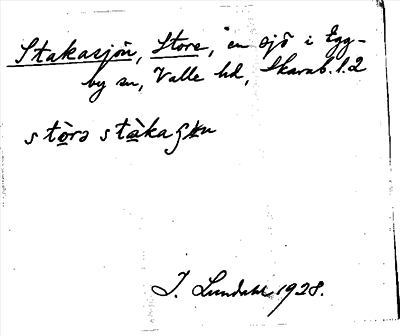 Stakasjön, Store, en sjö i Egg-
by sn, Valle hd, Skarab. l. 2
I. Lundahl 1928.